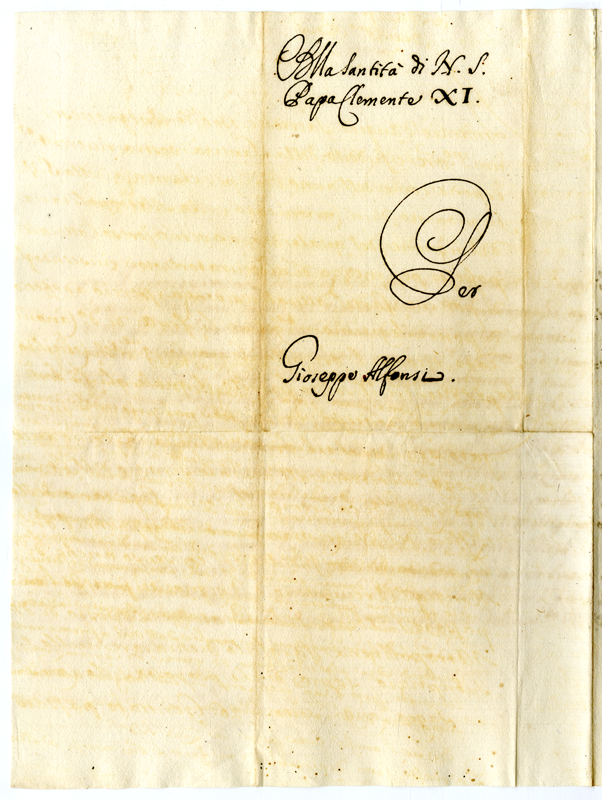 Alla Santità di N. S.
Papa Clemente XI.
Per
Gioseppe Alfonsi.